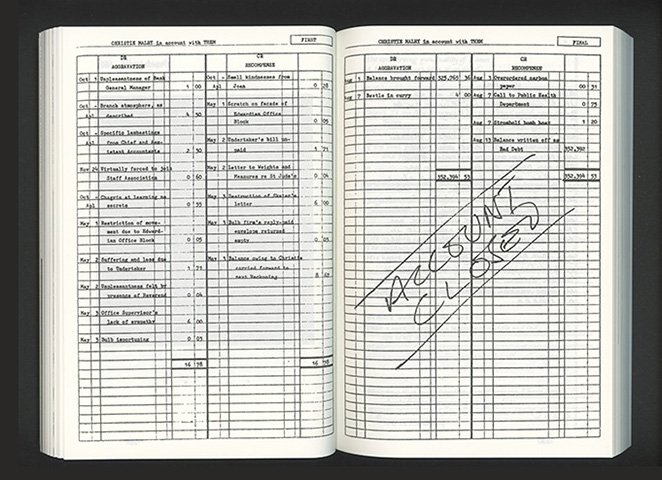 CHRISTIE MALRY in account with THEM
FIRST
DR
AGGRAVATION
Oct 1 Unpleasantness of Bank
General Manager 1 00
Oct - Branch atmosphere, as
Apl described 4 50
Oct - Specific lambastings
Apl from Chief and Ass-
istant Accountants 2 50
Nov 24 Virtually forced to join
Staff Association 0 60
Oct - Chagrin at learning
Apl secrets 0 35
May 1 Restriction of move-
ment due to Edward-
ian Office Block 0 05
May 2 Suffering and loss due
to Undertaker 1 71
May 2 Unpleasantness felt by
presence of Reverend 0 04
May 3 Office Supervisor's
lack of sympathy 6 00
May 3 Bulb importuning 0 03
16 78
CR
RECOMPENSE
Oct - Small kindnesses from
Apl Joan 0 28
May 1 Scratch on facade of
Edwardian Office
Block 0 05
May 2 Undertaker's bill un-
paid 1 71
May 2 Letter to Weights and
Measures re St Jude's 0 04
May 3 Destruction of Skater's
letter 6 00
May 3 Bulb firm's reply-paid
envelope returned
empty 0 03
May 3 Balance owing to Christie
carried forward to
next Reckoning 8 67
16 78
CHRISTIE MALRY in account with THEM
FINAL
DR
AGGRAVATION
Aug 1 Balance brought forward 36
Aug 7 Beetle in curry 4 00
352,394 53
CR
RECOMPENSE
Aug 3 Overordered carbon
paper 00 31
Aug 7 Call to Public Health
Department 0 75
Aug 7 Stromboli bomb hoax 1 20
Aug 13 Balance written off as
Bad Debt 352,392
352,394 53
ACCOUNT
CLOSED